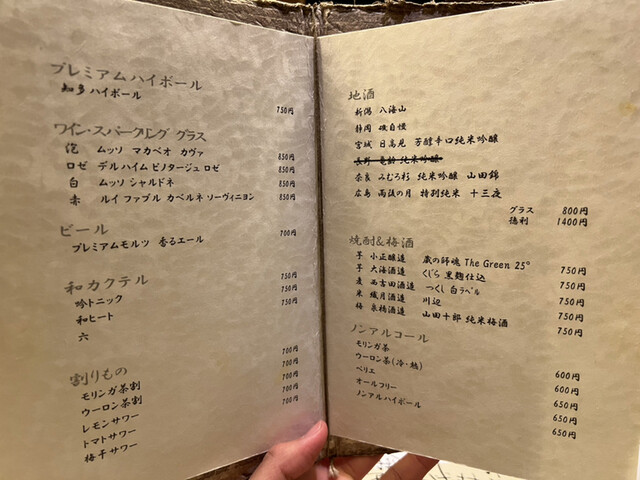 プレミアムハイボール
知多 ハイボール
750円
ワイン・スパークリング グラス
泡 ムッソ マカベオ カヴァ 850円
ロゼ デルハイム ピノタージュ ロゼ 850円
白 ムッソ シャルドネ 850円
赤 ルイ ファブル カベルネ ソーヴィニヨン 850円
ビール
プレミアムモルツ 香るエール 700円
和カクテル
吟トニック 750円
和ヒート 750円
六 750円
割りもの
モリンガ茶割 700円
ウーロン茶割 700円
レモンサワー 700円
トマトサワー 700円
梅干サワー 700円
地酒
新潟 八海山
静岡 磯自慢
宮城 日高見 芳醇辛口純米吟醸
長野 亀齢 純米吟醸
奈良 みむろ杉 純米吟醸 山田錦
広島 雨後の月 特別純米 十三夜
グラス 800円
徳利 1400円
焼酎&梅酒
芋 小正醸造 蔵の師魂 The Green 25° 750円
芋 大海酒造 くじら 黒麹仕込 750円
麦 西吉田酒造 つくし 白ラベル 750円
米 繊月酒造 川辺 750円
梅 泉橋酒造 山田十郎 純米梅酒 750円
ノンアルコール
モリンガ茶 600円
ウーロン茶(冷・熱) 600円
ペリエ 650円
オールフリー 650円
ノンアルハイボール 650円